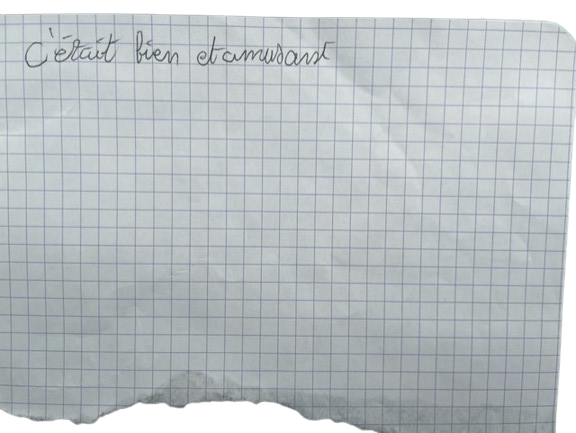 C'était bien et amusant